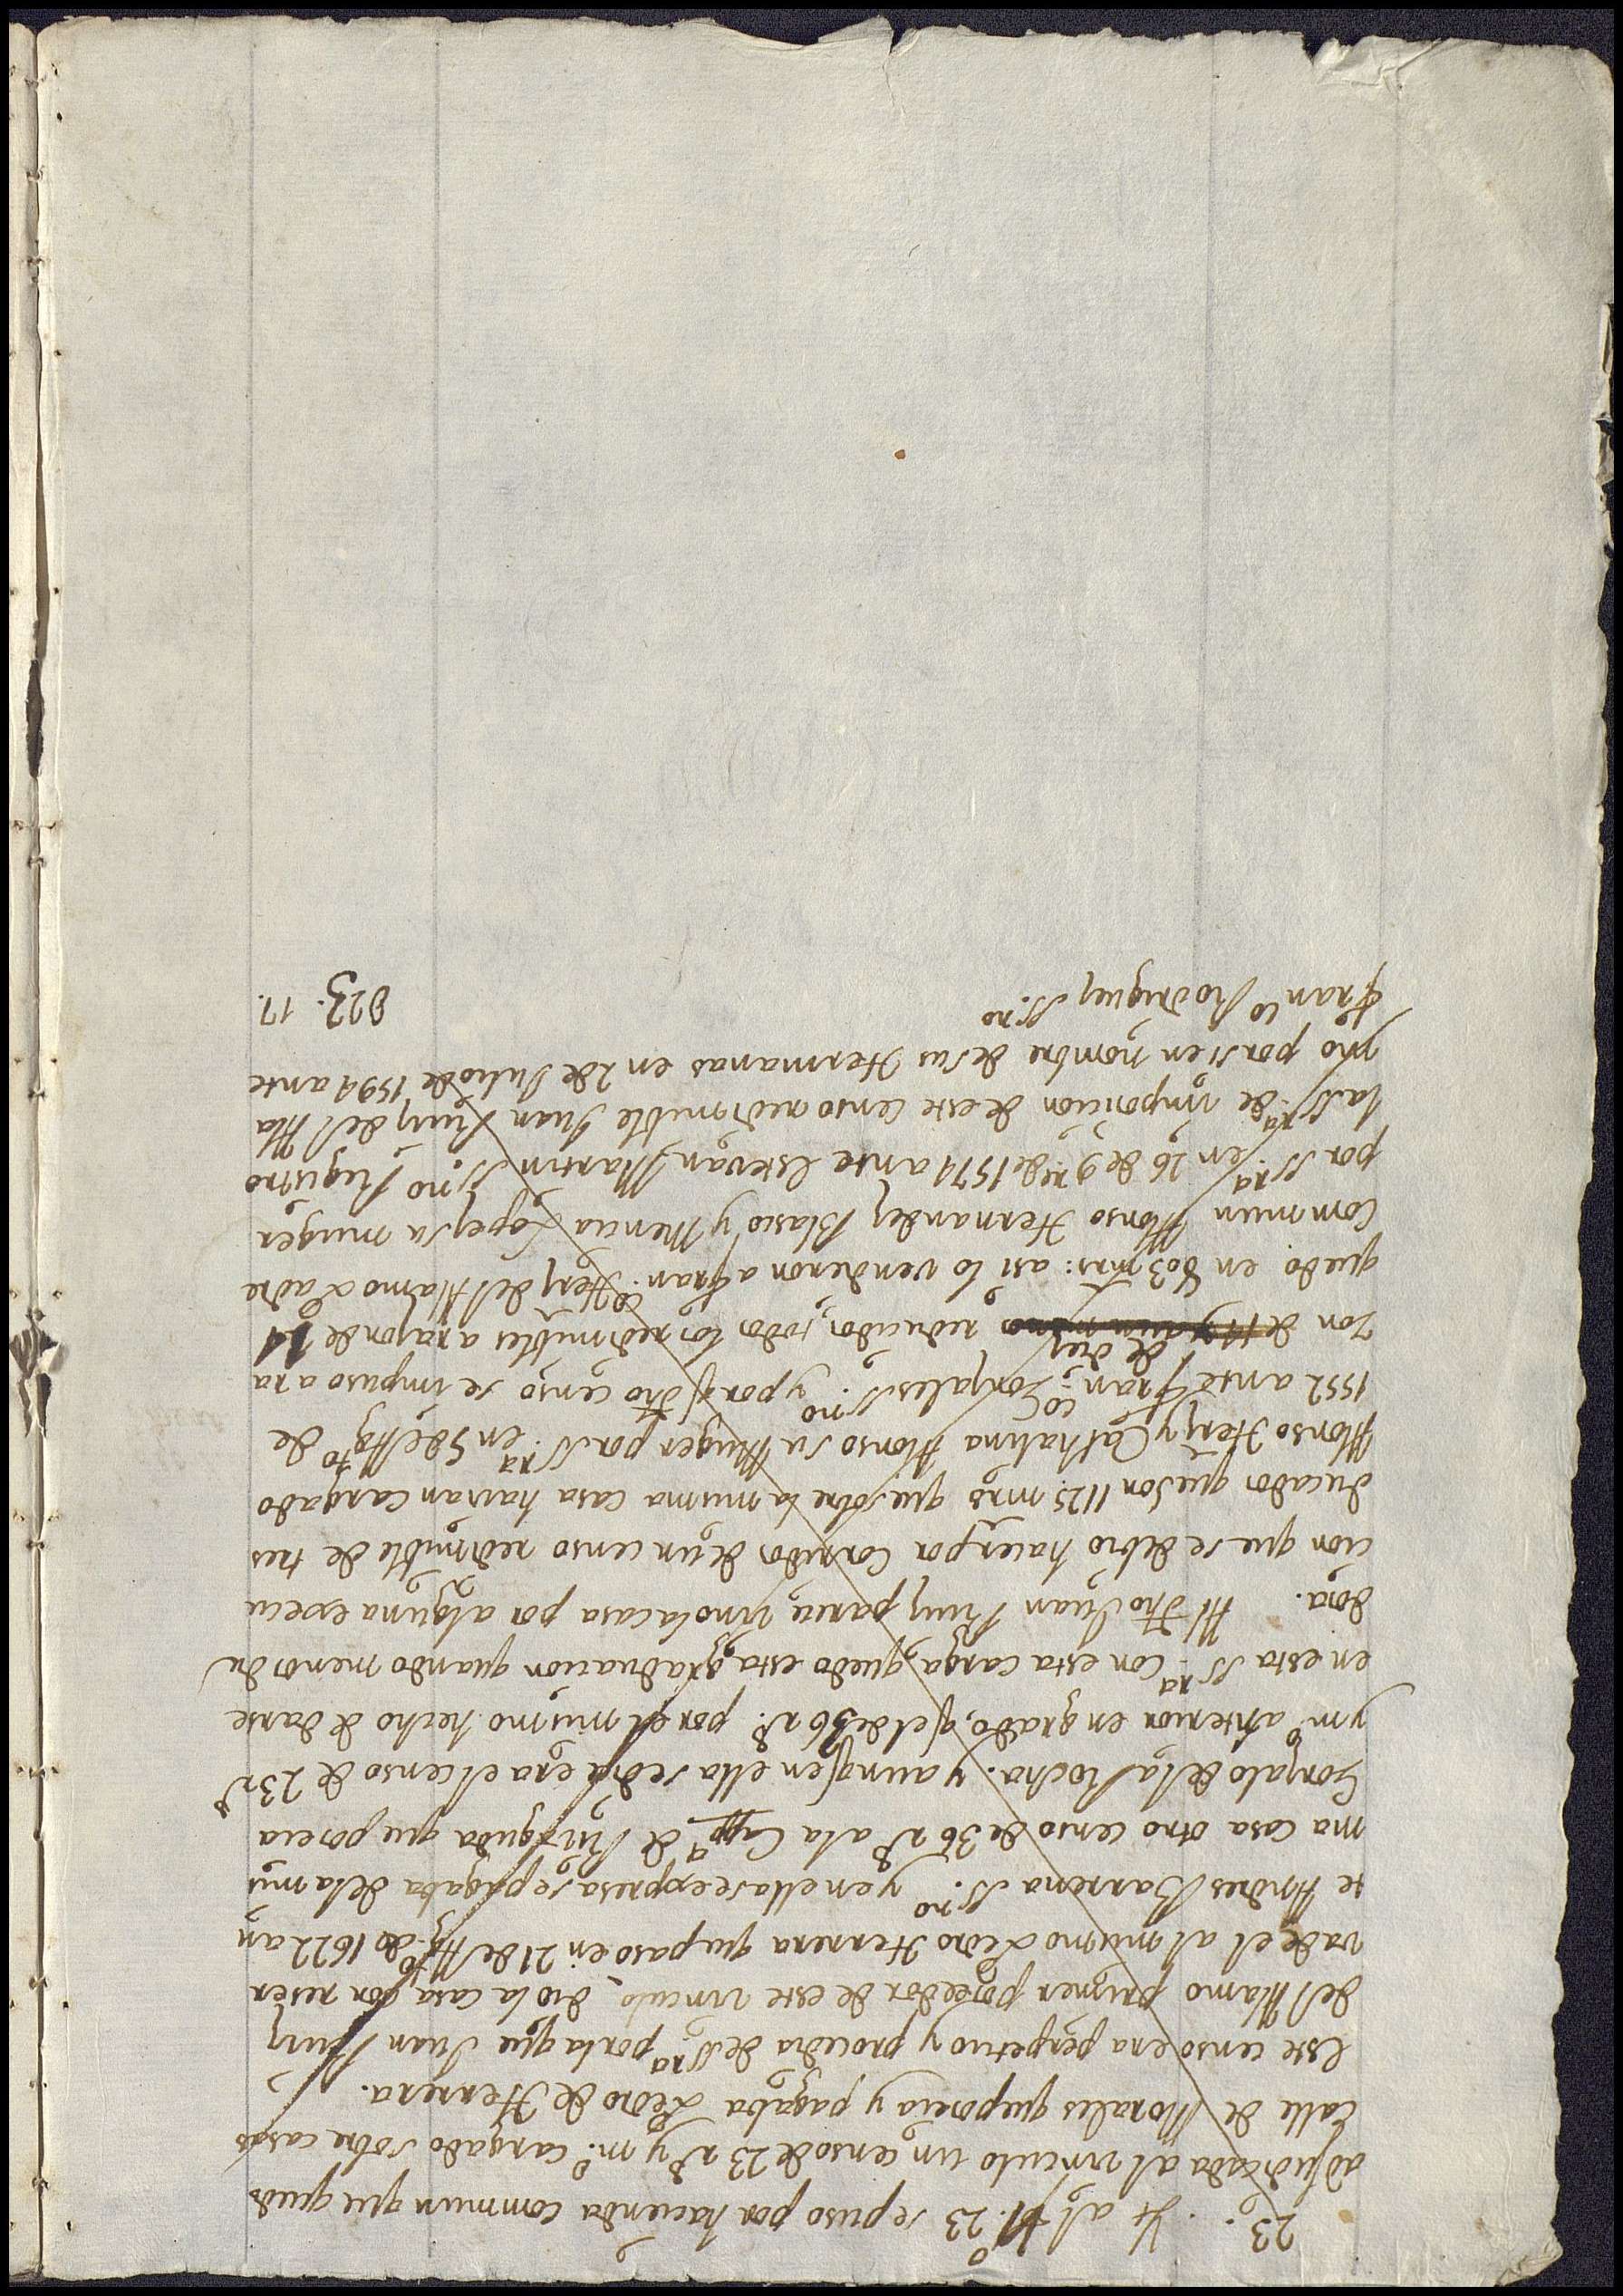 23. Yt. al N.º 23 se puso por hacienda commun que quedo
adjudicada al vinculo un censo de 23 rs y m.º cargado sobre casas
calle de Morales que poseia y pagaba Pedro de Herrera.
Este censo era perpetuo y procedia de ssra por la que Juan Ruiz
del Alamo primer poseedor de este vinculo dio la casa con reser
va de el al mismo Pedro Herrera que paso en 21 de Agto de 1622 an
te Andres Barrena ssno y en ella se expresa se pagaba de la mis
ma casa otro censo de 36 rs a la Capp.ª de que poseia
Gonzalo de la Rocha. y aunq en ella se dijo era el censo de 23 rs
y m.º anterior en grado, q el de 36 rs. por el mismo hecho de darse
en esta ssra con esta carga, quedo esta graduacion quando menos du
dosa. Al dho Juan Ruiz parece vino la casa por alguna execu
cion que se debio hacer por corridos de un censo redimible de tres
ducados que son 1125 mrs que sobre la misma casa havian cargado
Alonso Hern̄z y Cathalina Alonso su Muger por ssra en 5 de Agto de
1552 ante Fran.co Gonzales ssno. y por q dho censo se impuso a ra
zon de diez reducidos, todos los redimibles a razon de 14
quedo en 803 mrs: asi lo vendieron a Fran.co Hern̄z del Alamo Padre
commun Alonso Hernandez Blasco y Mencia Lopez su muger
por ssra en 26 de 9re de 1574 ante Estevan Martin ssno Registro
la ssra de imposicion de este censo redimible Juan Ruiz del Ala
mo por si en nombre de sus Hermanas en 2 de Julio de 1594 ante
Fran.co Rodriguez ssno 023. 17.